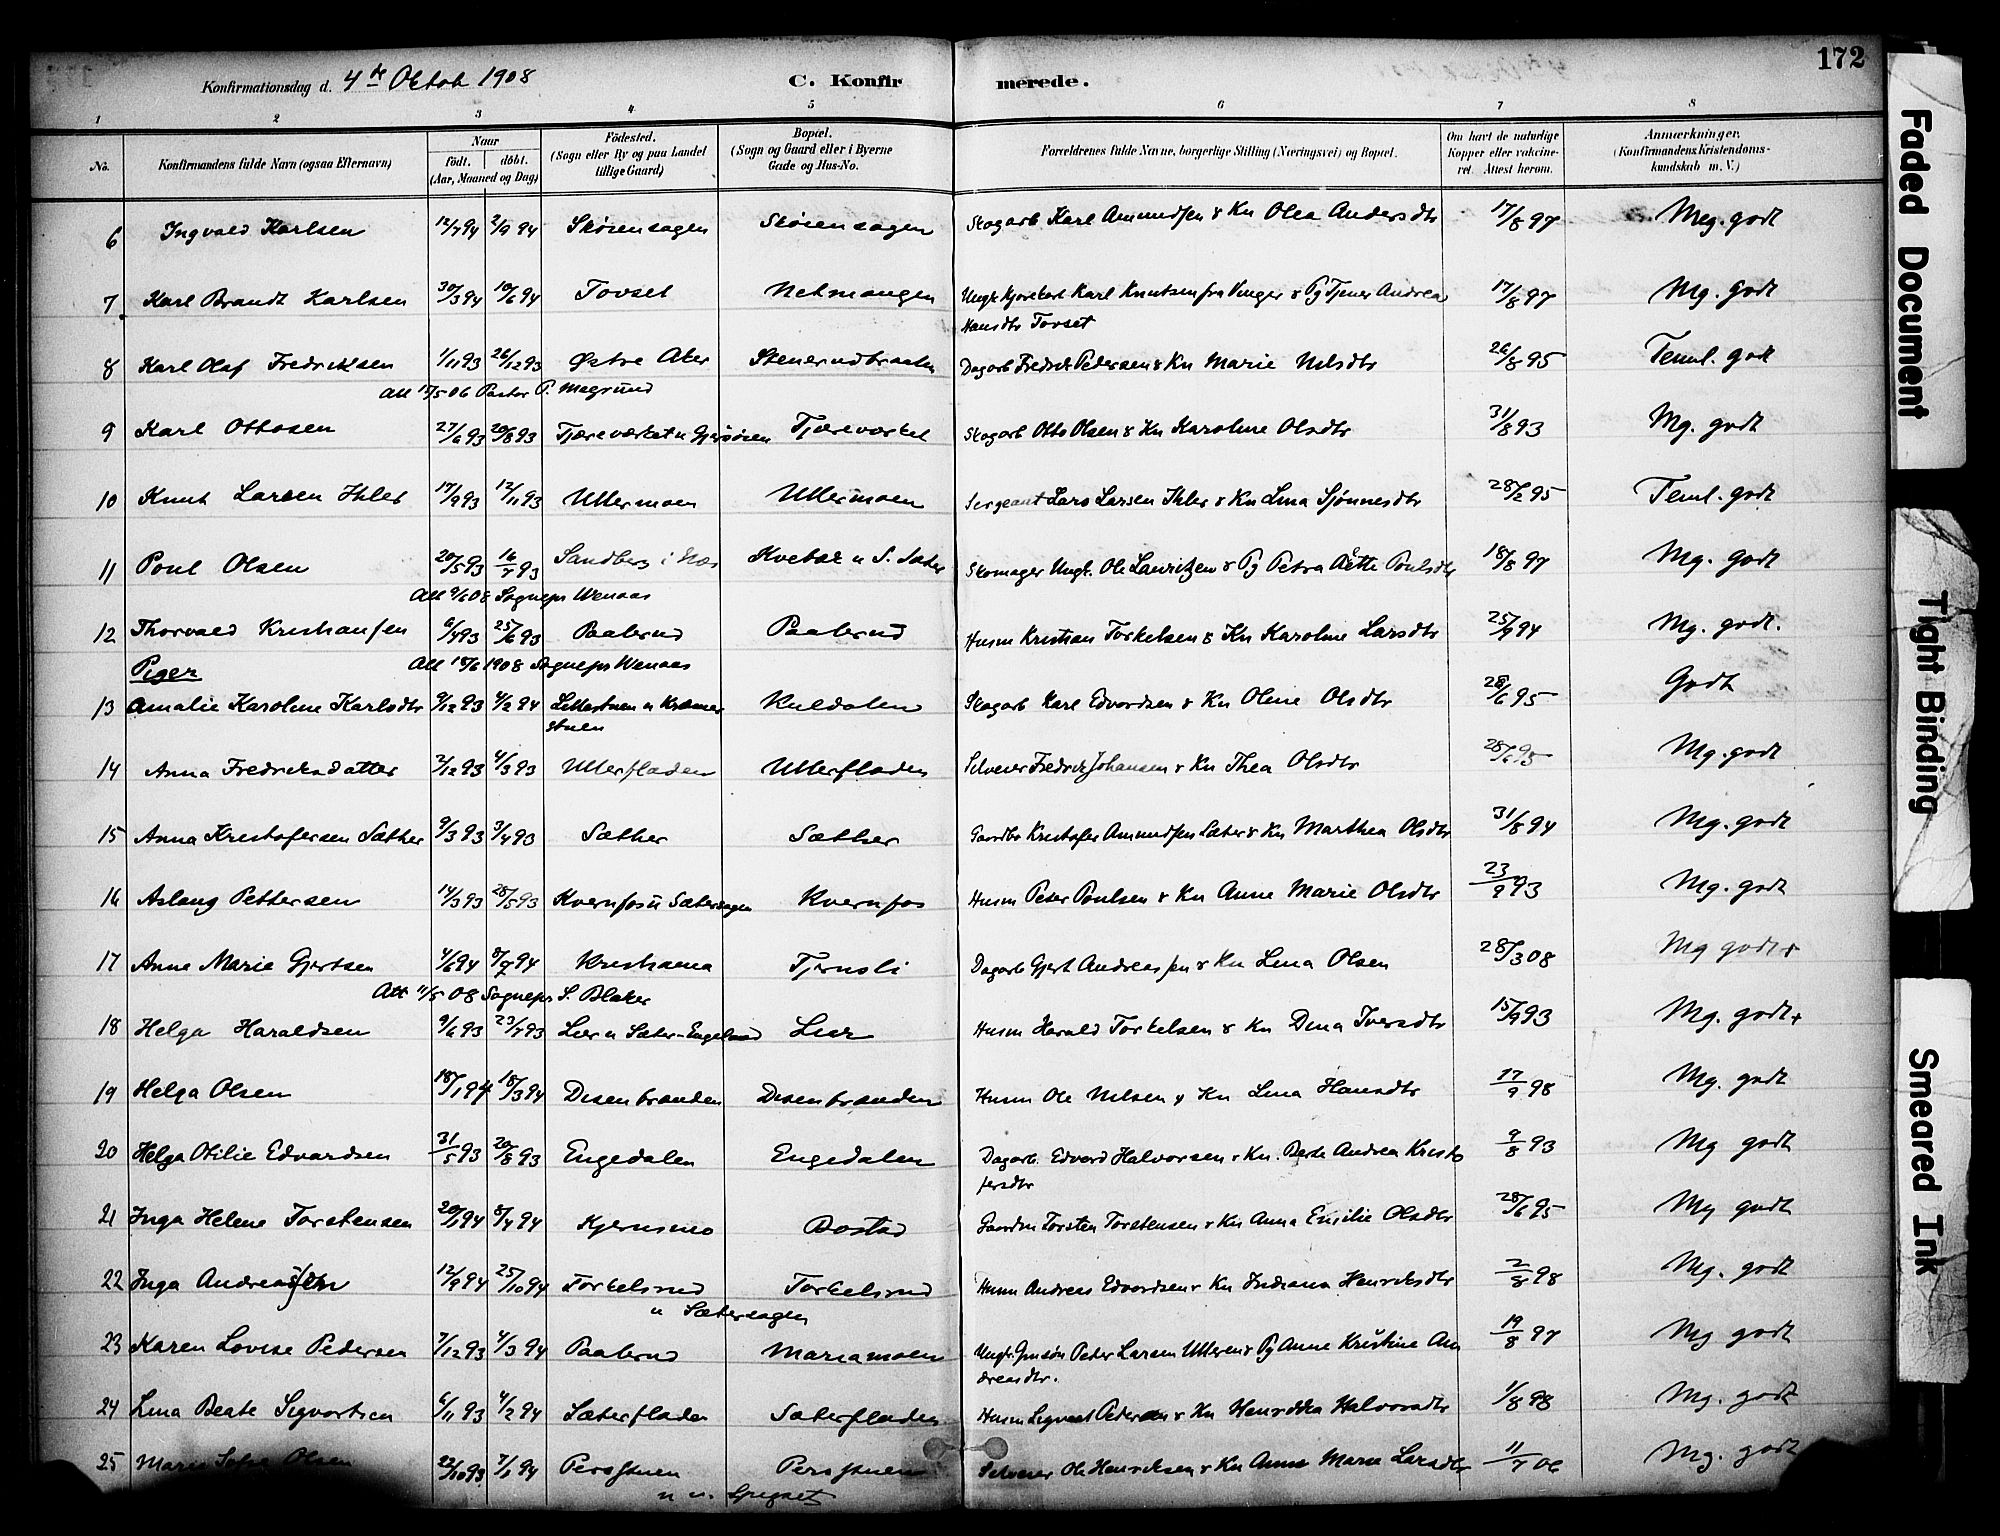 172
Konfirmationsdag d. 4de Oktob 1908 C. Konfirmerede.
1 2 3 4 5 6 7 8
No. Konfirmandens fulde Navn (ogsaa Efternavn) Naar födt. döbt. (Aar, Maaned og Dag) Födested. (Sogn eller By og paa Landet tillige Gaard) Bopæl. (Sogn og Gaard eller i Byerne Gade og Hus-No. Forældrenes fulde Navne, borgerlige Stilling (Næringsvei) og Bopæl. Om havt de naturlige Kopper eller vakcineret. Attest herom. Anmærkninger. (Konfirmandens Kristendomskundskab m. V.)
6 Ingvald Karlsen 12/7 94 2/9 94 Skösensagen Skösensagen Skogarb Karl Amundsen & Kn Olea Andersdtr 17/8 97 Meg. godt
7 Karl Brandt Karlsen 30/3 94 10/6 94 Tovset Netmangen Ungk Kjørekarl Karl Knutsen fra Vinger & Pg Tjener Andrea 17/8 97 Mg. godt
Hansdtr Tovset
8 Karl Olaf Fredriksen 1/11 93 26/12 93 Østre Aker Stenerudbraaten Dagarb Fredrik Pedersen & Kn Marie Nilsdtr 26/8 95 Teml. godt
Att 15/5 06 Pastor P. Magrund
9 Karl Ottosen 27/6 93 20/8 93 Tjæreværket u Gjersöien Tjæreværket Skogarb Otto Olsen & Kn Karoline Olsdtr 31/8 93 Mg. godt
10 Knut Larsen Ihler 17/9 93 12/11 93 Ullermoen Ullermoen Sergeant Lars Larsen Ihler & Kn Lina Sjønnesdtr 28/2 95 Teml. godt
11 Poul Olsen 20/5 93 16/7 93 Sandberg i Næs Kvebæk u S. Sæter Skomager Ungk. Ole Lauritzen & Pg Petra Aette Poulsdtr 18/8 97 Mg. godt
Att 9/6 08 Sognepr Wenaas
12 Thorvald Kristiansen 6/4 93 25/6 93 Paalerud Paalerud Husm Kristian Torkelsen & Kn Karoline Larsdtr 25/9 94 Mg. godt.
Piger Att 18/6 1908 Sognepr Wenaas
13 Amalie Karoline Karlsdtr 9/12 93 4/2 94 Lillestuen u Kræmer Kuldalen Skogarb Karl Edvardsen & Kn Oline Olsdtr 28/6 95 Godt
stuen
14 Anna Fredriksdatter 2/12 93 4/3 93 Ullerfladen Ullerfladen Selveier Fredrik Johansen & Kn Thea Olsdtr 28/6 95 Mg. godt
15 Anna Kristofersen Sæther 9/3 93 3/4 93 Sæther Sæther Gaardbr Kristofer Amundsen Sæter & Kn Marthea Olsdtr 31/8 94 Mg. godt
16 Aslaug Pettersen 14/3 93 28/5 93 Kvernfos u Sætersagen Kvernfos Husm Peter Poulsen & Kn Anne Marie Olsdtr 23/9 93 Mg. godt
17 Anne Marie Gjertsen 4/6 94 8/7 94 Kristiania Tjernsli Dagarb Gjert Andreassen & Kn Lina Olsen 28/3 08 Mg godt+
Att 11/5 08 Sognepr S. Blaker
18 Helga Haraldsen 9/6 93 23/7 93 Lier u Sæter-Engelund Lier Husm Harald Torkelsen & Kn Dina Iversdtr 15/9 93 Mg. godt+
19 Helga Olsen 18/1 94 18/3 94 Disenbranden Disenbranden Husm Ole Nilsen & Kn Lina Hansdtr 17/9 98 Mg. godt
20 Helga Otilie Edvardsen 31/5 93 20/8 93 Engedalen Engedalen Dagarb. Edvard Halvorsen & Kn. Berte Andrea Kristo 9/8 93 Mg godt
fersdtr
21 Inga Helene Torstensen 20/1 94 8/4 94 Kjernsmo Bostad Gaardm Torsten Torstensen & Kn Anna Emilie Olsdtr 28/6 95 Mg godt
22 Inga Andreassen 12/9 94 25/10 94 Torkelsrud Torkelsrud Husm Andreas Edvardsen & Kn Indiana Henriksdtr 2/8 98 Mg. godt
u Sætersagen
23 Karen Lovise Pedersen 7/12 93 4/3 94 Paalerud Mariamoen Ungk. Peder Larsen Ulleren & Pg Anne Kristine An 19/8 97 Mg godt
dreasdtr.
24 Lina Beate Sigvartsen 6/11 93 4/2 94 Sæterfladen Sæterfladen Husm Sigvart Pedersen & Kn Henrikka Halvorsdtr 1/8 98 Mg. godt
25 Marie Sofie Olsen 22/10 93 7/1 94 Persstuen Persstuen Selveier Ole Henriksen & Kn Anne Marie Larsdtr 11/7 06 Mg. godt
u u. Spigset
Faded Document
Tight Binding
Smeared Ink